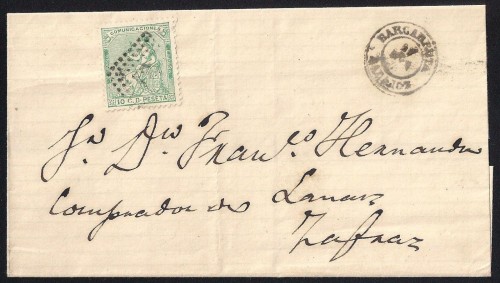 COMUNICACIONES
10 C. D. PESETA
BARCARROTA
Sr. Dn. Franco. Hernandez
Comprador de Lanas
Zafra